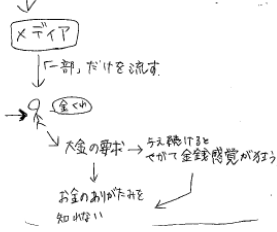 メディア
「一部」だけを流す
金くれ
大金の要求 → 与え続けると
やがて金銭感覚が狂う
お金のありがたみを
知れない